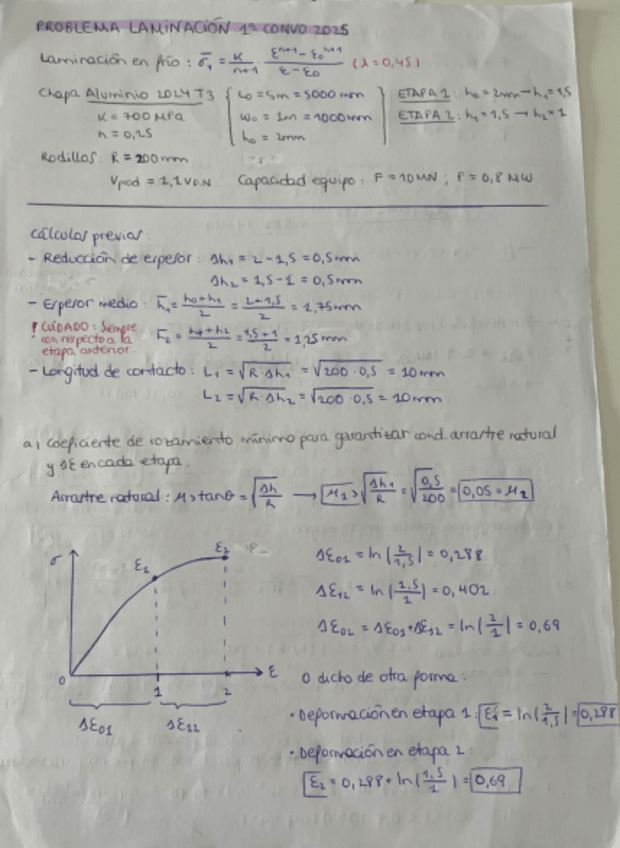 PROBLEMA LAMINACIÓN 1ª CONVO 2025
Laminación en frío : σ̄₁ = K/(n+1) · (ε^(n+1) − ε₀^(n+1))/(ε − ε₀) (λ = 0,45)
Chapa Aluminio 2024 T3 { L₀ = 5m = 5000 mm } ETAPA 1 : h₀ = 2mm → h₁ = 1,5
K = 700 MPa { w₀ = 1m = 1000mm } ETAPA 2 : h₁ = 1,5 → h₂ = 1
n = 0,25 { h₀ = 2mm }
Rodillos : R = 200 mm
Vprod = 1,1 V D.N Capacidad equipo : F = 10 MN ; P = 0,8 MW
Cálculos previos :
- Reducción de espesor : Δh₁ = 2 − 1,5 = 0,5mm
Δh₂ = 1,5 − 1 = 0,5mm
- Espesor medio : h̄₁ = (h₀+h₁)/2 = (2+1,5)/2 = 1,75mm
! CUIDADO : Siempre con respecto a la etapa anterior
h̄₂ = (h₁+h₂)/2 = (1,5+1)/2 = 1,25 mm
- Longitud de contacto : L₁ = √(R·Δh₁) = √(200·0,5) = 10 mm
L₂ = √(R·Δh₂) = √(200·0,5) = 10 mm
a) Coeficiente de rozamiento mínimo para garantizar cond. arrastre natural
y Δε en cada etapa.
Arrastre natural : μ > tanθ = √(Δh/R) → μ₁ > √(Δh₁/R) = √(0,5/200) = 0,05 = μ₂
σ ε₁ ε₂
0 1 2 ε
Δε₀₁ Δε₁₂
Δε₀₁ = ln(2/1,5) = 0,288
Δε₁₂ = ln(1,5/1) = 0,402
Δε₀₂ = Δε₀₁ + Δε₁₂ = ln(2/1) = 0,69
O dicho de otra forma :
• Deformación en etapa 1 : ε₁ = ln(2/1,5) = 0,288
• Deformación en etapa 2 :
ε₂ = 0,288 + ln(1,5/1) = 0,69